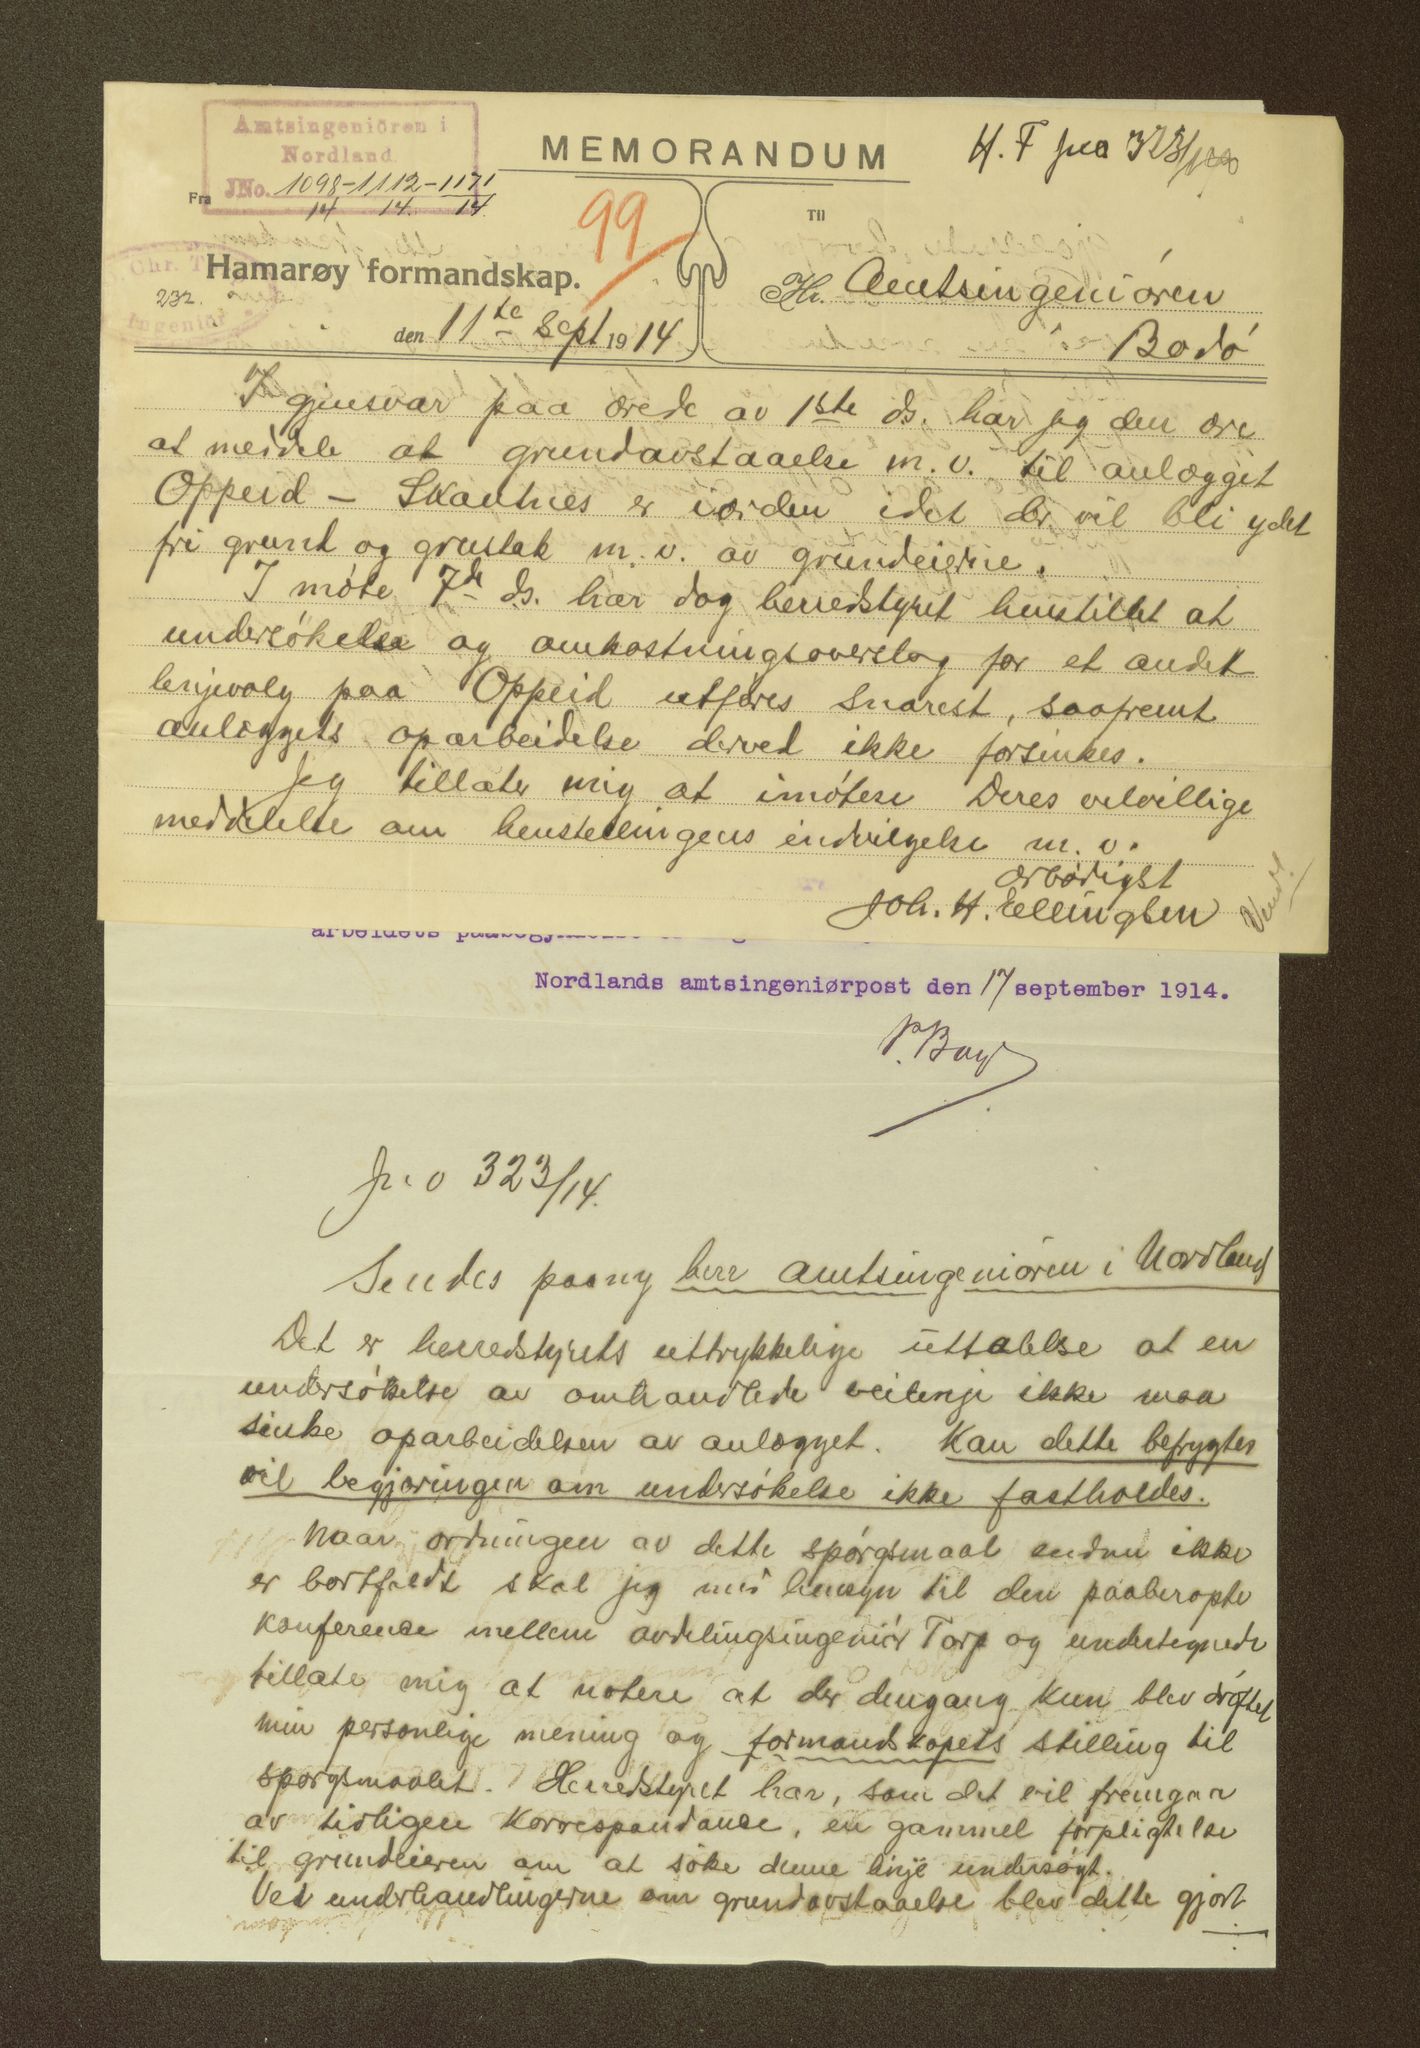 Amtsingeniören i
Nordland
JNo. 1098-1112-1171
14 14. 14.
MEMORANDUM
H. F jno 323/1400
Fra
99
Til
Chr. T
Ingeniör
232.
Hamarøy formandskap.
den 11te Sept 1914
Hr. Amtsingeniören
Bodö
I gjensvar paa ærede av 1ste ds. har jeg den ære
at meddele at grundavstaaelse m. v. til anlægget
Oppeid - Skautnes er iorden idet der vil bli ydet
fri grunt og grustak m. v. av grundeierne.
I møte 7de ds. har dog herredstyret henstillet at
undersökelse og omkostningsoverslag for et andet
linjevalg paa Oppeid utføres snarest, saafremt
anlæggets oparbeidelse derved ikke forsinkes.
Jeg tillater mig at imötese Deres velvillige
meddelelse om henstillingens indvilgelse m. v.
ærbödigst
Joh. H. Ellingsen
Vend!
Nordlands amtsingeniørpost den 17 september 1914.
P. Bay
Jno 323/14.
Sendes paany herr amtsingeniören i Nordland
Det er herredstyrets uttrykkelige uttalelse at en
undersökelse av omhandlede veilinje ikke maa
sinke oparbeidelsen av anlægget. Kan dette befrygtes
vil begjæringen om undersökelse ikke fastholdes.
Naar ordningen av dette spörgsmaal endnu ikke
er bortfaldt skal jeg mes hensyn til den paaberopte
konference mellem avdelingsingeniör Torp og undertegnede
tillate mig at notere at der dengang kun blev dröftet
min personlige mening og formandskapets stilling til
spørgsmaalet. Herredstyret har, som det vil fremgaa
av tidligere korrespondance, en gammel forpligtelse
til grundeieren om at söke denne linje undersøgt.
Ved underhandlingerne om grundavstaaelse blev dette gjort